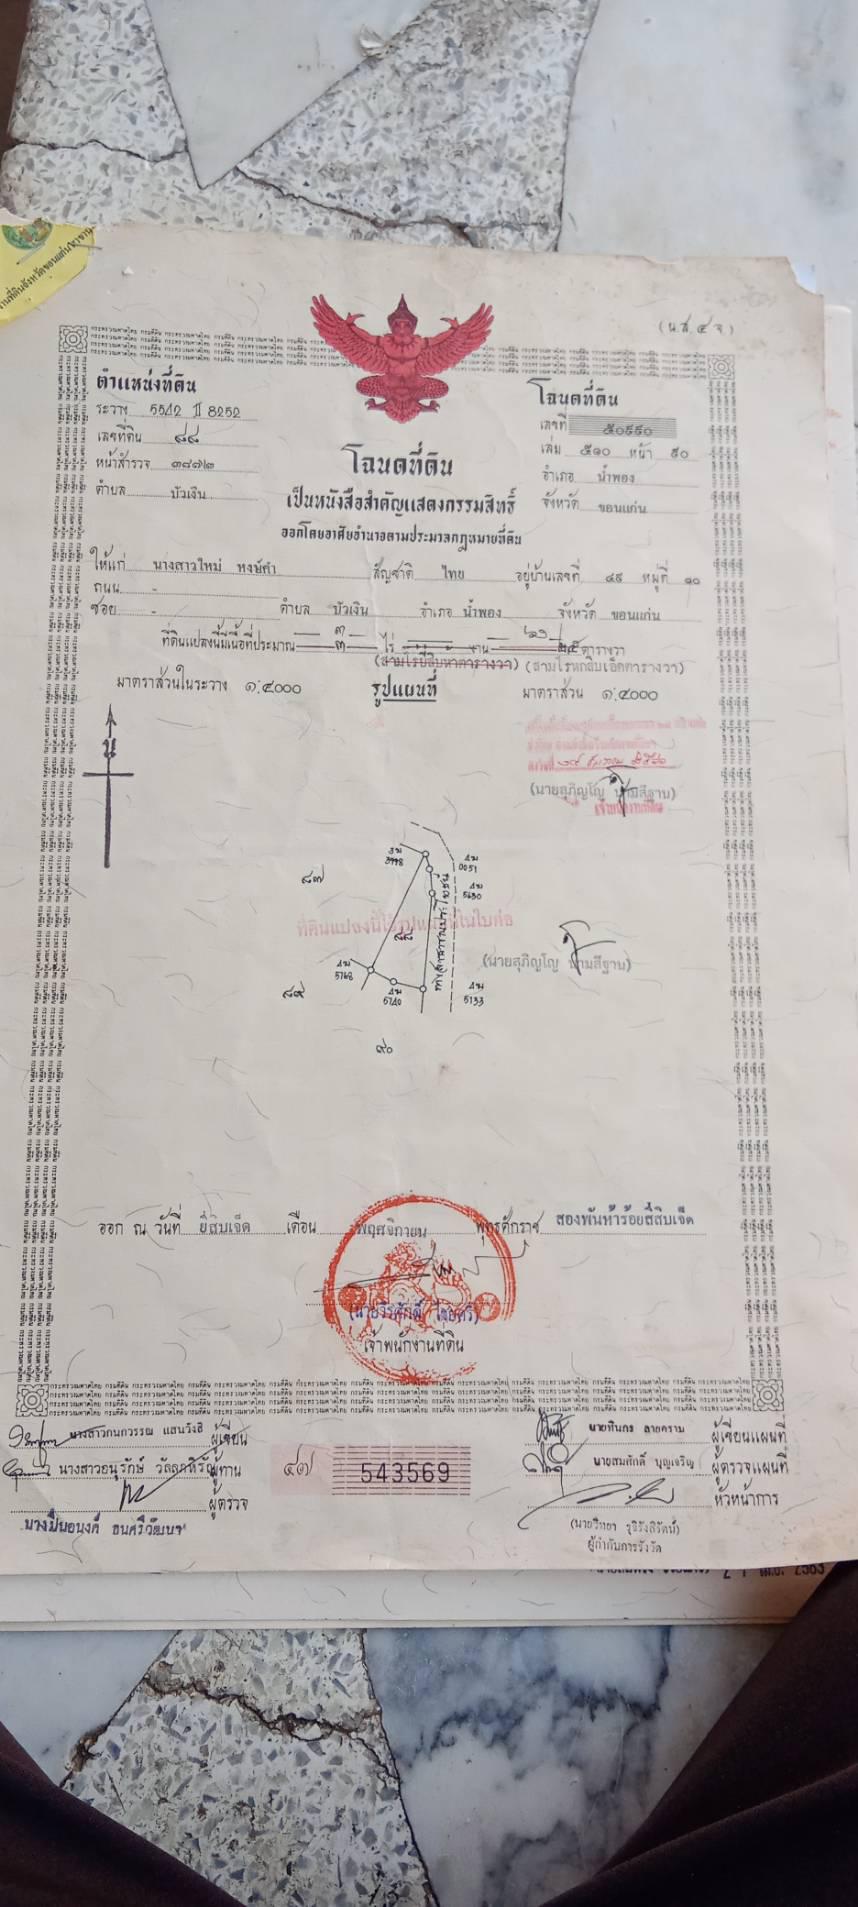 (น.ส. ๔ จ)
ตำแหน่งที่ดิน
ระวาง 5542 II 8252
เลขที่ดิน ๘๘
หน้าสำรวจ ๓๘๗๒
ตำบล บัวเงิน
โฉนดที่ดิน
เลขที่ ๕๐๙๙๐
เล่ม ๕๑๐ หน้า ๙๐
อำเภอ น้ำพอง
จังหวัด ขอนแก่น
โฉนดที่ดิน
เป็นหนังสือสำคัญแสดงกรรมสิทธิ์
ออกโดยอาศัยอำนาจตามประมวลกฎหมายที่ดิน
ให้แก่ นางสาวใหม่ หงษ์คำ สัญชาติ ไทย อยู่บ้านเลขที่ ๔๙ หมู่ที่ ๑๐
ถนน -
ซอย - ตำบล บัวเงิน อำเภอ น้ำพอง จังหวัด ขอนแก่น
๓ ๖๑
ที่ดินแปลงนี้มีเนื้อที่ประมาณ ๓ ไร่ งาน ๒๕ ตารางวา
(สามไร่ยี่สิบห้าตารางวา) (สามไร่หกสิบเอ็ดตารางวา)
มาตราส่วนในระวาง ๑:๔๐๐๐ รูปแผนที่ มาตราส่วน ๑:๔๐๐๐
น
(นายสุภิญโญ นามสีฐาน)
เจ้าพนักงานที่ดิน
๘๗
3998
0051
5630
ที่ดินแปลงนี้ใช้รูปแผนที่ในใบต่อ
๘๘
(นายสุภิญโญ นามสีฐาน)
5768
๘๙
5740
5133
๙๐
ออก ณ วันที่ ยี่สิบเจ็ด เดือน พฤศจิกายน พุทธศักราช สองพันห้าร้อยสี่สิบเจ็ด
เจ้าพนักงานที่ดิน
นางสาวกนกวรรณ แสนวังสี ผู้เขียน
นางสาวอนุรักษ์ ผู้ทาน
ผู้ตรวจ
๔๗ 543569
นายทินกร ลายคราม ผู้เขียนแผนที่
นายสมศักดิ์ บุญเจริญ ผู้ตรวจแผนที่
หัวหน้าการ
ผู้กำกับการรังวัด